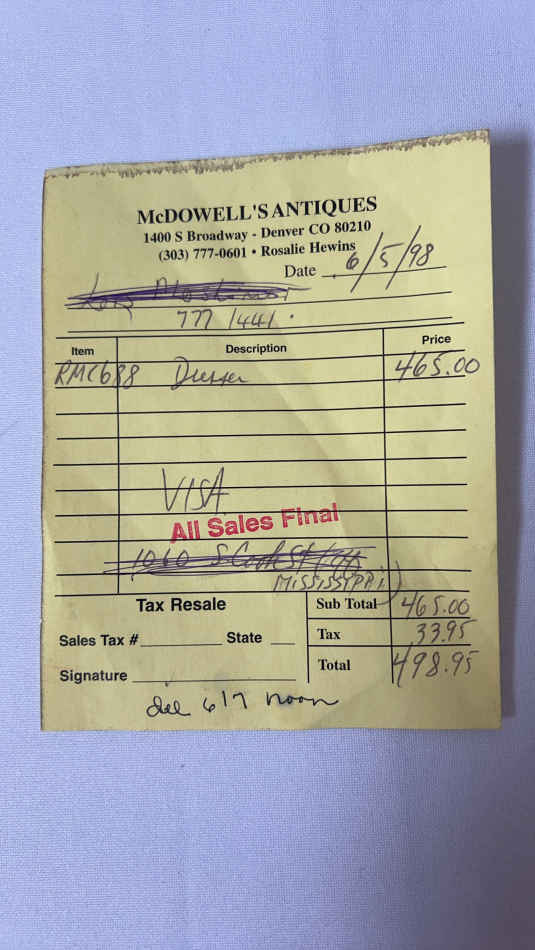 McDOWELL'S ANTIQUES
1400 S Broadway - Denver CO 80210
(303) 777-0601 • Rosalie Hewins
Date 6/5/98
777 1441
Item Description Price
RMC688 Dresser 465.00
VISA
All Sales Final
1060 S
MISSISSIPPI)
Tax Resale
Sub Total 465.00
Sales Tax # State
Tax 33.95
Signature
Total 498.95
del 6/7 noon